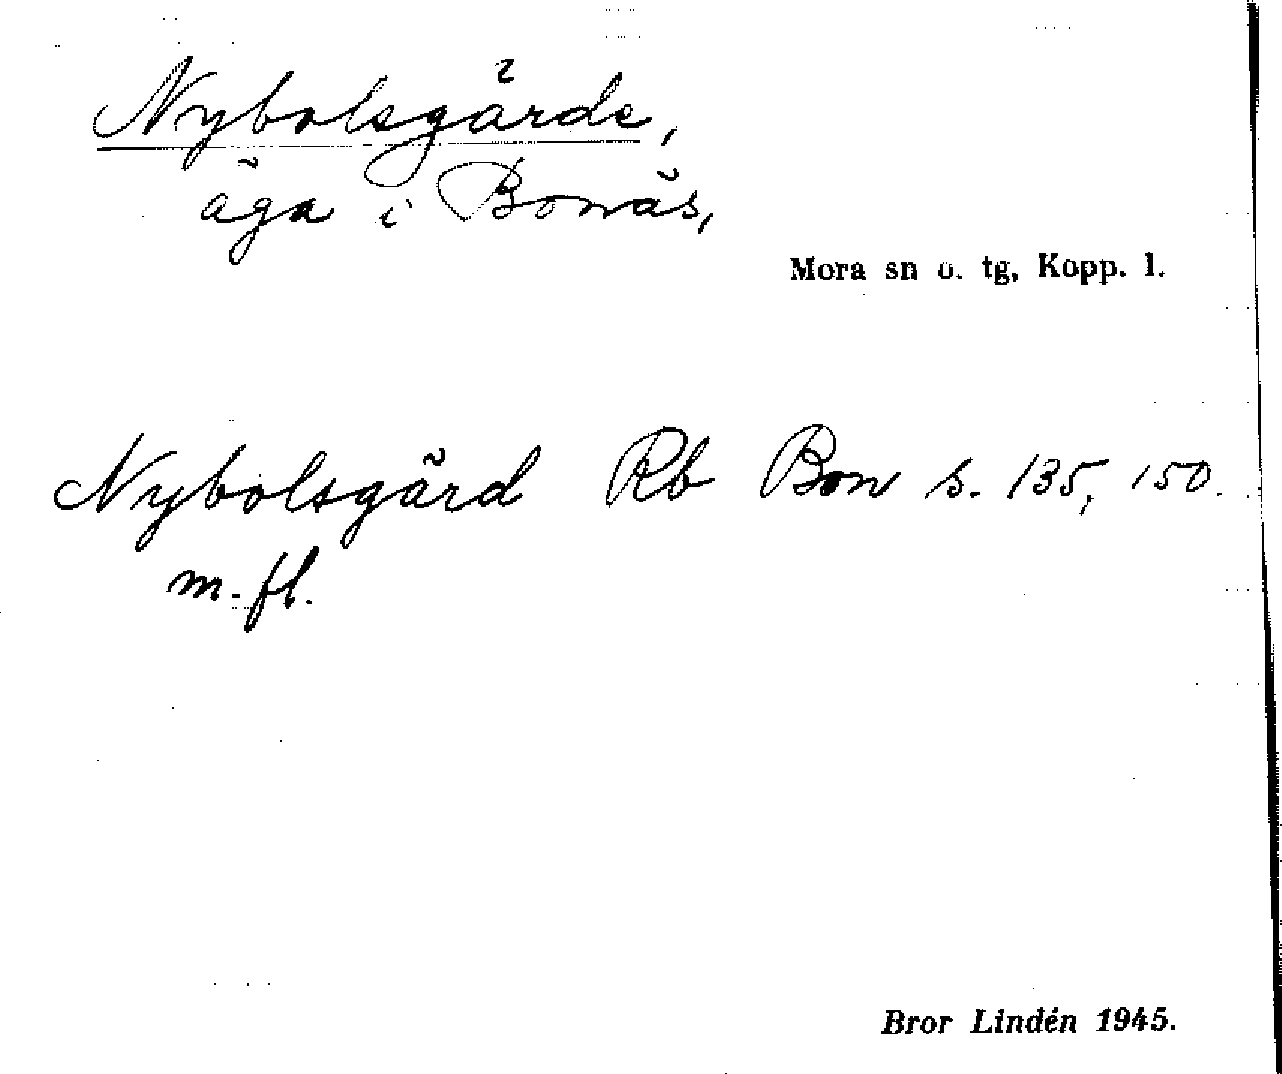 Nybolsgärde,
äga i Bonäs,
Mora sn o. tg, Kopp. l.
Nybolsgärd Rb Bon s. 135, 150.
m. fl.
Bror Lindén 1945.